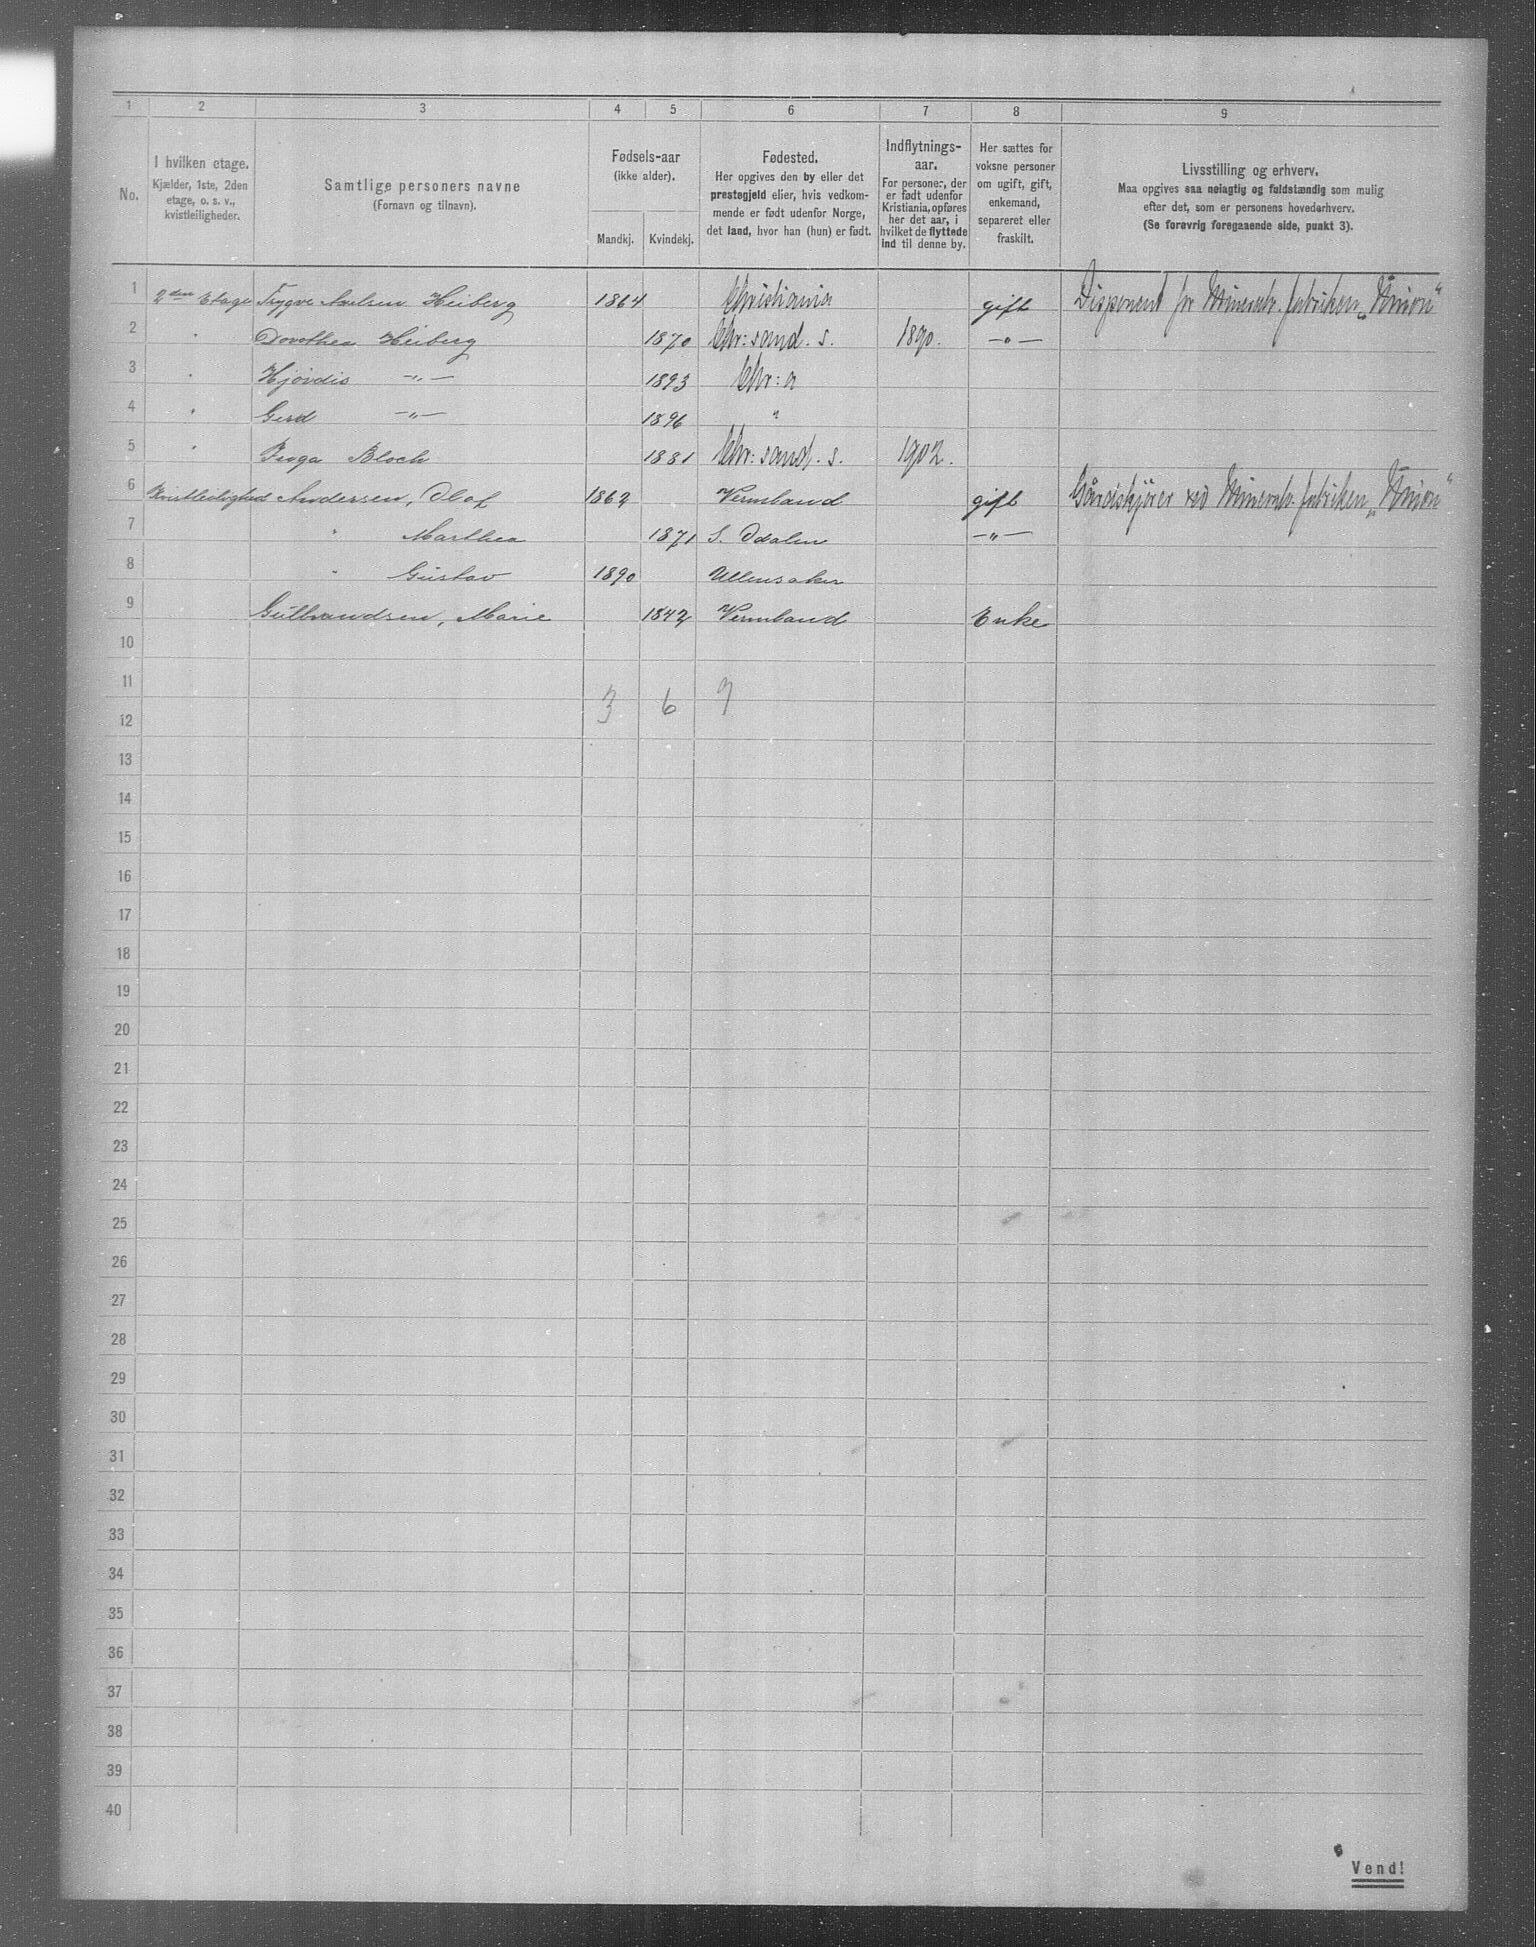 1 2 3 4 5 6 7 8 9
No.
I hvilken etage.
Kjælder, 1ste, 2den
etage, o. s. v.,
kvistleiligheder.
Samtlige personers navne
(Fornavn og tilnavn).
Fødsels-aar
(ikke alder).
Mandkj. Kvindekj.
Fødested.
Her opgives den by eller det
prestegjeld eller, hvis vedkom-
mende er født udenfor Norge,
det land, hvor han (hun) er født.
Indflytnings-
aar.
For personer, der
er født udenfor
Kristiania, opføres
her det aar, i
hvilket de flyttede
ind til denne by.
Her sættes for
voksne personer
om ugift, gift,
enkemand,
separeret eller
fraskilt.
Livsstilling og erhverv.
Maa opgives saa nøiagtig og fuldstændig som mulig
efter det, som er personens hovederhverv.
(Se forøvrig foregaaende side, punkt 3).
1 2den Etage Trygve Heiberg 1864 Christiania gift Disponent for Mineralv. fabriken „Union“
2 " Dorothea Heiberg 1870 Chr: sand. s. 1890. —"—
3 " Hjørdis —"— 1893 Chr: a
4 " Gerd —"— 1896 "
5 " Inga Bloch 1881 Chr: sand. s. 1902.
6 Kvistleilighed Andersen, Olaf 1862 Vermland gift Gårdskjører ved Mineralv. fabriken „Union“
7 " Marthea 1871 S. Odalen —"—
8 " Gustav 1890 Ullensaker
9 Gulbrandsen, Marie 1842 Vermland Enke
10
11
3 6 7
12
13
14
15
16
17
18
19
20
21
22
23
24
25
26
27
28
29
30
31
32
33
34
35
36
37
38
39
40
Vend!